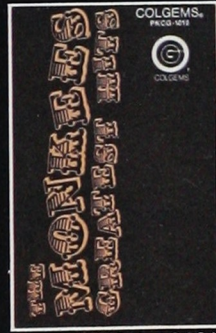 COLGEMS®
PKCG-1018
COLGEMS
THE
MONKEES
GREATEST HITS